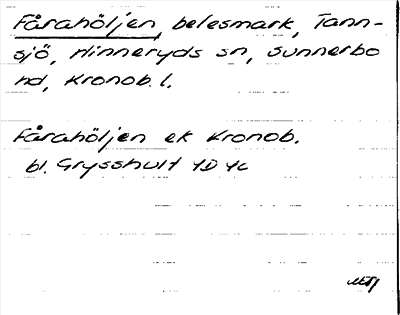 Fårahöljen, belesmark, Tann-
sjö, Hinneryds sn, Sunnerbo
hd, Kronob. l.
Fårahöljen ek Kronob.
bl. Grysshult 4D 4c